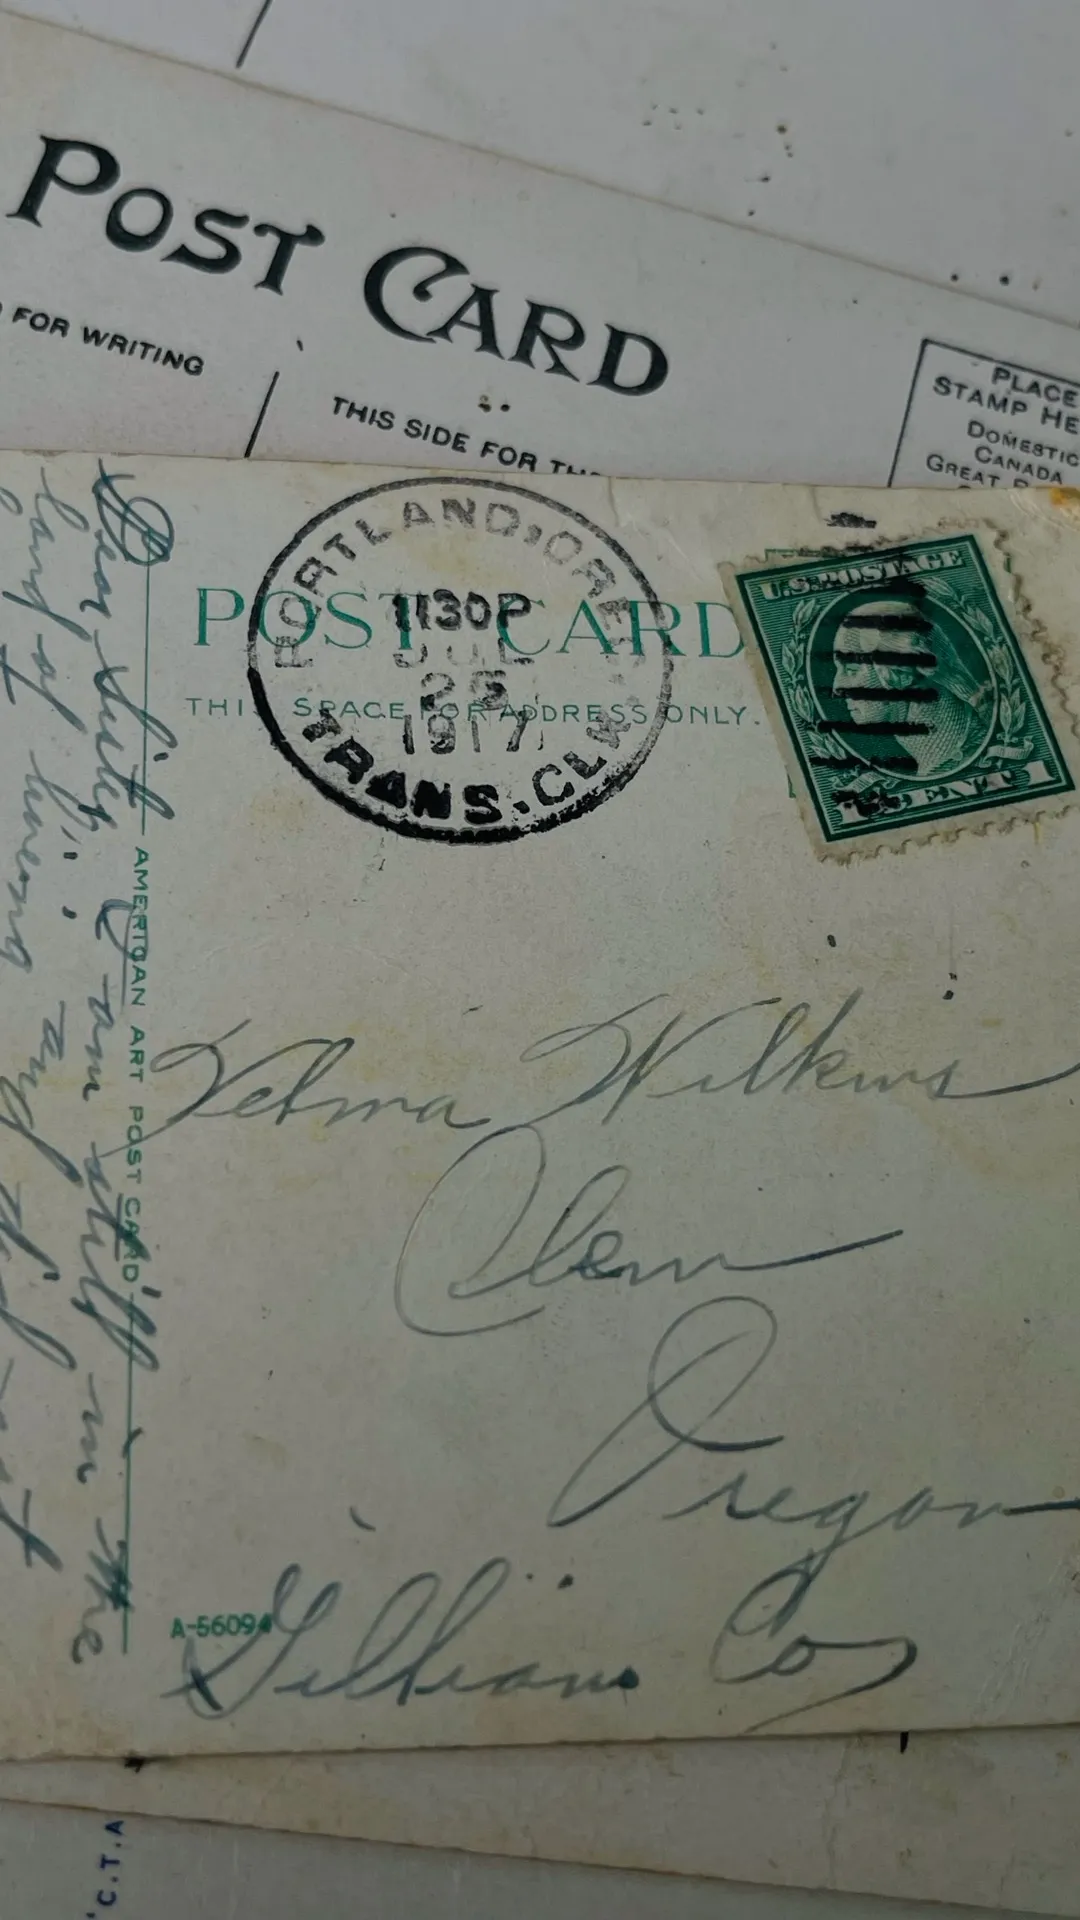 POST CARD
FOR WRITING
THIS SIDE FOR
PLACE
STAMP HE
DOMESTIC
CANADA
GREAT
PORTLAND, ORE.
1130P
JUL
25
1917
TRANS. CLK.
POST CARD
THIS SPACE FOR ADDRESS ONLY.
U.S. POSTAGE
1 CENT 1
Dear Sister I am still in the
land of living and did not
AMERICAN ART POST CARD
Velma Wilkins
Clem
Oregon
Gilliam Co
A-56094
C.T.A